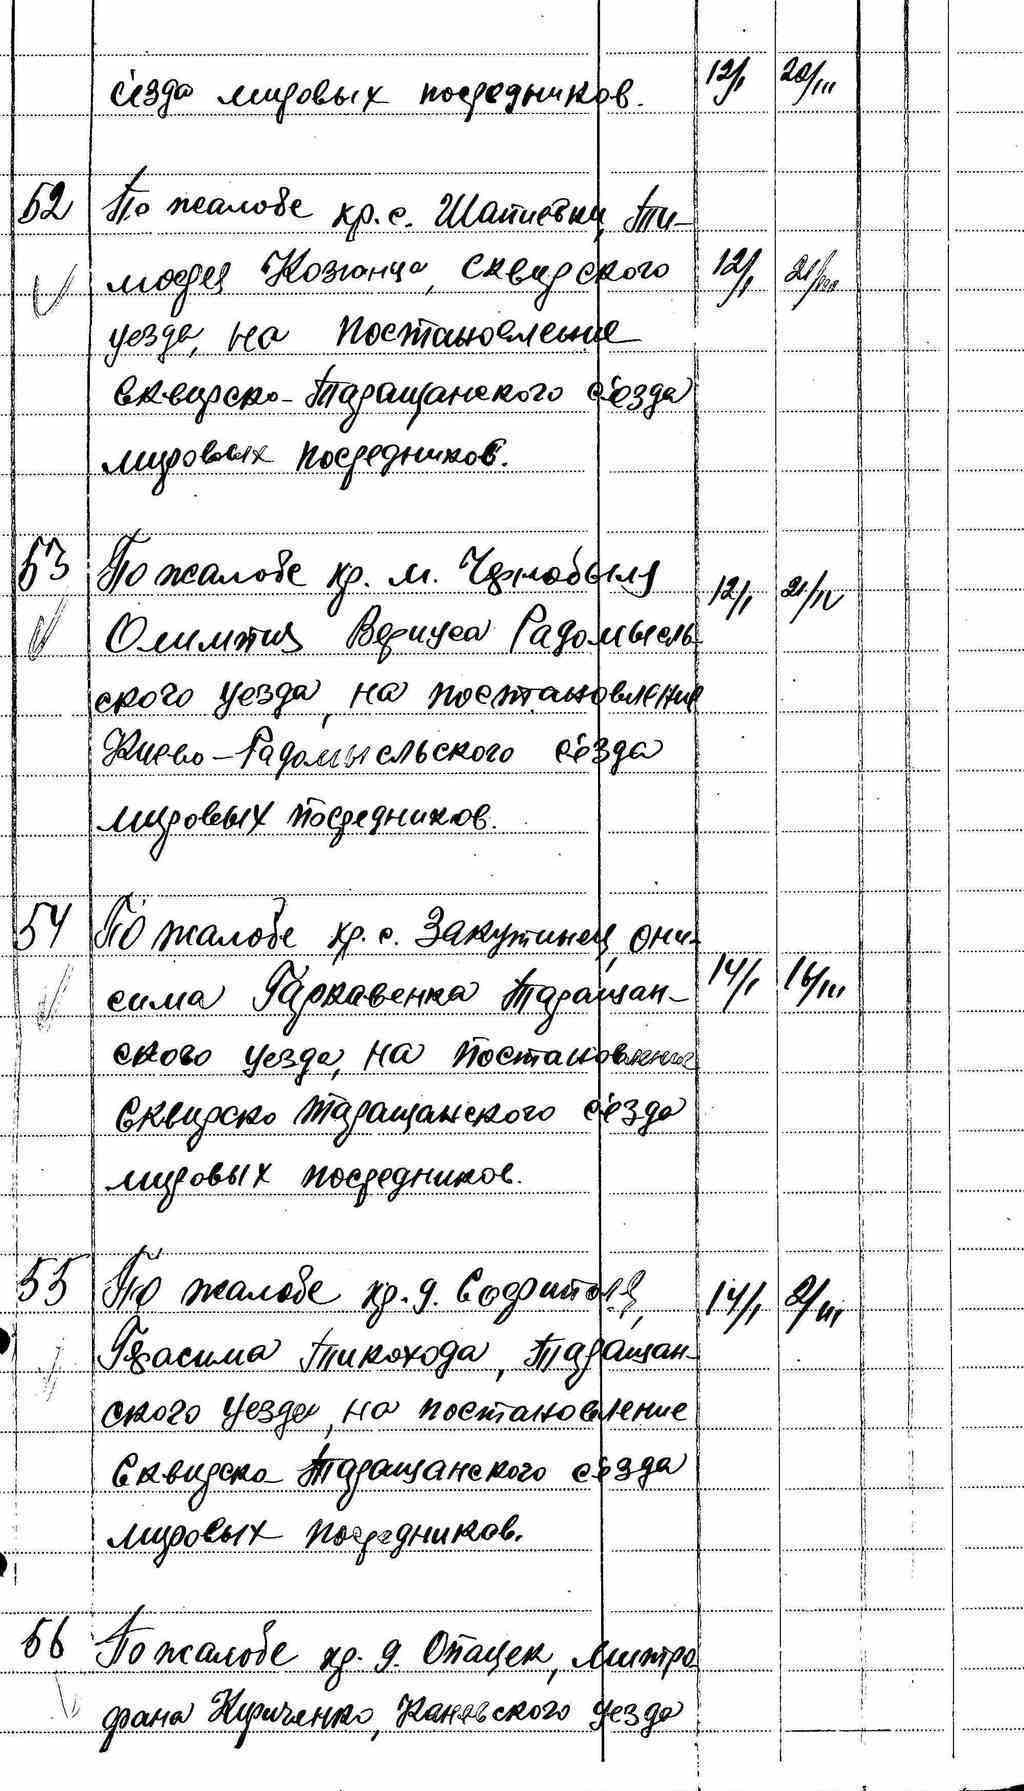 с'езда мировых посредников. 12/I 20/III
52 По жалобе кр. с. Шапиевки, Ти-
мофея Козганца, Сквирского 12/I 21/VIII
уезда, на постановление
Сквирско-Таращанского с'езда
мировых посредников.
53 По жалобе кр. м. Чернобыля 12/I 21/IV
Олимпия Вериуса Радомысль-
ского уезда, на постановление
Киево-Радомысльского с'езда
мировых посредников.
54 По жалобе кр. с. Закутинец, Они-
сима Гаркавенка Таращан- 14/I 16/III
ского уезда, на постановление
Сквирско Таращанского с'езда
мировых посредников.
55 По жалобе кр. д. 14/I 2/III
Герасима Тихохода, Таращан-
ского уезда, на постановление
Сквирско-Таращанского с'езда
мировых посредников.
56 По жалобе кр. д. Опачек, Митро
фана Кириченко, Каневского уезда